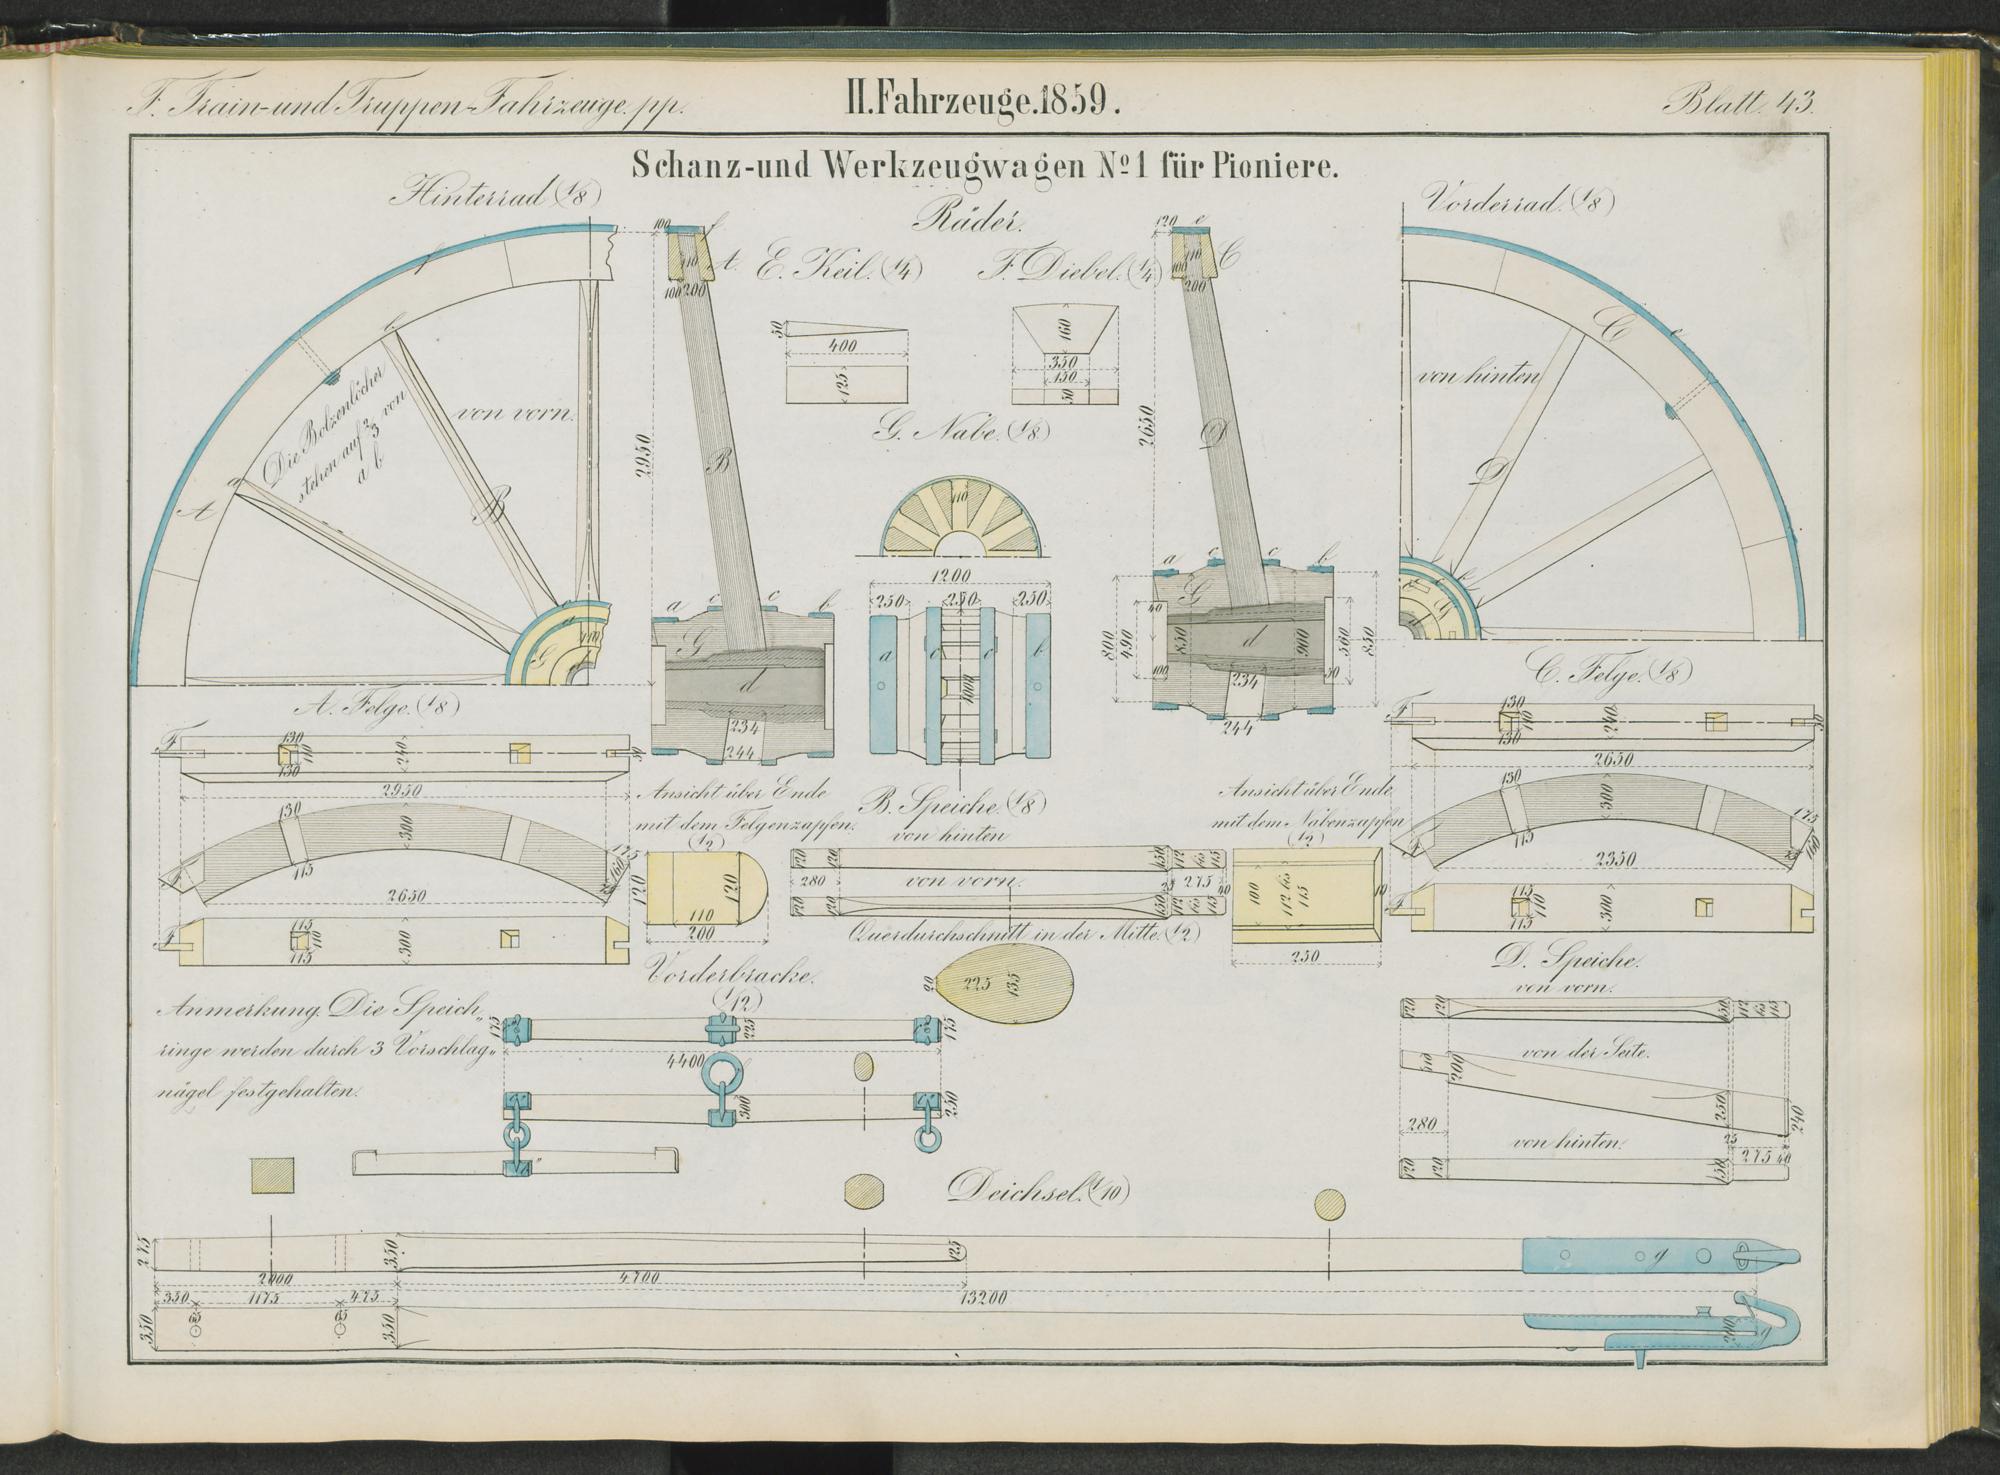 F. Train- und Truppen-Fahrzeuge. pp.
II. Fahrzeuge. 1859.
Blatt. 43.
Schanz- und Werkzeugwagen No 1 für Pioniere.
Räder.
Hinterrad (1/8)
Vorderrad. (1/8)
E. Keil. (1/4)
F. Diebel. (1/4)
50
400
125
160
350
150
50
G. Nabe. (1/8)
110
1200
250
250
250
a
c
1000
c
b
f
b
a
A
B
von vorn.
Die Bolzenlöcher
stehen auf 2/3 von
a b
100
f
A.
110
100
200
2950
B
a
c
c
b
G
d
234
244
120
e
C
110
100
200
2650
D
a
c
c
b
G
40
800
490
850
d
900
560
850
100
50
234
244
C
e
von hinten
D
A. Felge. (1/8)
F
130
110
130
240
50
2950
130
300
115
175
160
F
2650
F
115
110
115
300
C. Felge. (1/8)
F
130
110
130
240
50
2650
130
300
115
175
160
F
2350
F
115
110
115
300
Ansicht über Ende
mit dem Felgenzapfen.
(1/2)
120
120
110
200
B. Speiche. (1/8)
von hinten
120
120
150
112
65
115
280
von vorn.
25
275
40
120
120
150
112
65
115
Querdurchschnitt in der Mitte. (1/2)
20
225
135
Ansicht über Ende
mit dem Nabenzapfen
(1/2)
100
112
65
115
10
250
D. Speiche.
von vorn.
120
120
150
112
65
115
von der Seite.
200
250
240
280
25
von hinten.
275
40
120
120
150
Vorderbracke.
(1/12)
175
225
175
4400
300
250
Anmerkung. Die Speich„
ringe werden durch 3 Vorschlag„
nägel festgehalten.
Deichsel. (1/10)
275
350
125
g
2000
4700
350
1175
475
13200
350
65
65
350
200
g